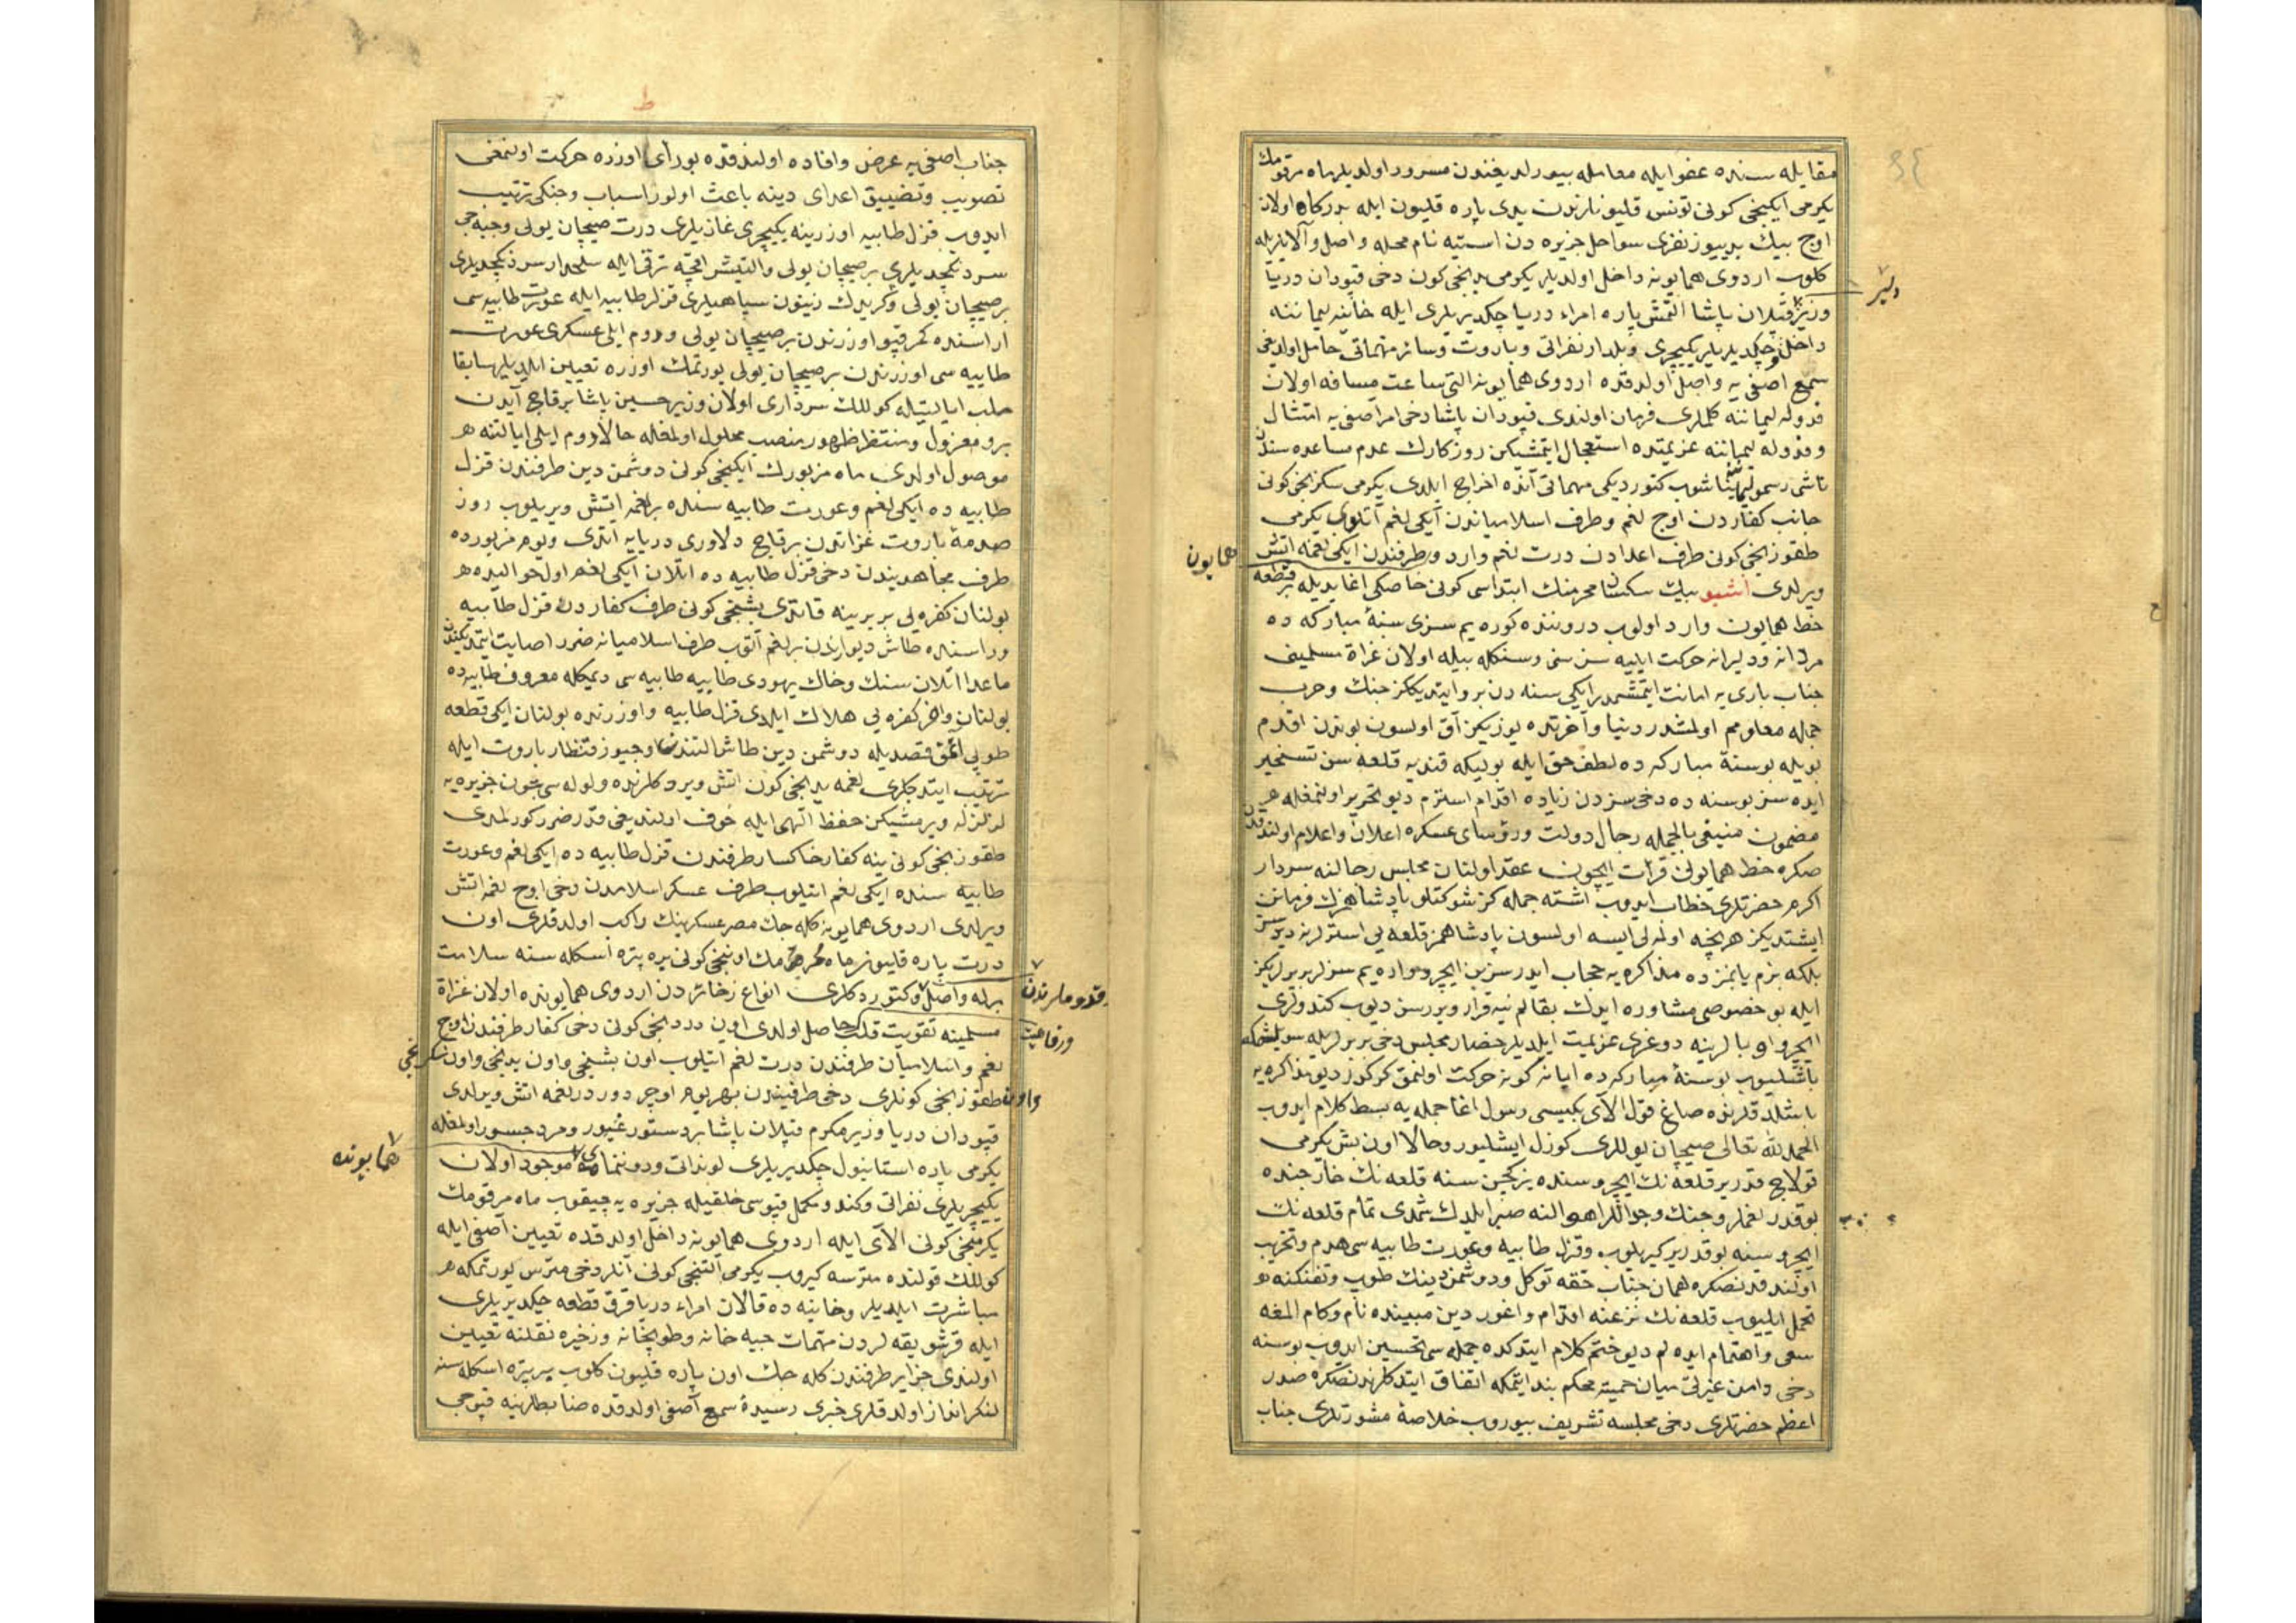 مقابله سنده عفو ایله معامله بیورلدیغندن مسرور اولدیلر ماه مرقومك
یکرمی ایکنجی کونی تونس قلیونلرندن یدی پاره قلیون ایله بدرکاه اولان
اوج بیك یدییوز نفری سواحل جزیره دن استیه نام محله واصل و آلایلریله
کلوب اردوی همایونه داخل اولدیلر یکرمی یدنجی کون دخی قپودان دریا
وزیر قپلان پاشا التمش پاره امراء دریا چکدیریلری ایله خانیه لیماننه
دلیر
داخل و چکدیریلر یکیچری و بلدار نفراتی و باروت و سائر مهماتی حامل اولدیغی
سمع اصفی یه واصل اولدقده اردوی همایونه التی ساعت مسافه اولان
فدوله لیماننه کلملری فرمان اولندی قپودان پاشا دخی امر اصفی یه امتثال
و فدوله لیماننه عزیمتده استعجال ایتمشیکن روزکارك عدم مساعده سندن
ناشی رسمو لیماننه یناشوب کتوردیکی مهماتی آنده اخراج ایلدی یکرمی سکزنجی کونی
جانب کفاردن اوج لغم و طرف اسلامیاندن ایکی لغم آتلوب یکرمی
طقوزنجی کونی طرف اعدادن درت لغم وارد و طرفندن ایکی لغمه اتش
همایون
ویرلدی اشبو بیك سکسان محرمنك ابتداسی کونی خاصکی اغا یدیله بر قطعه
خط همایون وارد اولوب دروننده کوره یم سزی سنۀ مبارکه ده
مردانه و دلیرانه حرکت ایلیه سن سنی و سنکله بیله اولان غزاة مسلمینی
جناب باری یه امانت ایتمشمدر ایکی سنه دن برو ایتدیککز جنك و حرب
جمله معلومم اولمشدر دنیا و آخرتده یوزیکز آق اولسون بوندن اقدم
بویله بو سنۀ مبارکه ده لطف حق ایله بولیکه قندیه قلعه سن تسخیر
ایده سز بو سنه ده دخی سزدن زیاده اقدام استرم دیو تحریر اولنمغله هر
مضمون منیفی بالجمله رجال دولت و رؤسای عسکره اعلان و اعلام اولندقدن
صکره خط همایونی قرائت ایچون عقد اولنان مجلس رجالنه سردار
اکرم حضرتلری خطاب ایدوب اشته جمله کز شوکتلو پادشاهمزك فرمانن
ایشتدیکز هر نجه اولملی ایسه اولسون پادشاهمز قلعه یی استرلر نه دیرسز
بلکه بزم یانمزده مذاکره یه حجاب ایدرسز بن ایچرو واره یم سزلر بربریکز
ایله بو خصوصی مشاوره ایدك بقالم نیه قرار ویررسز دیوب کندولری
ایچرو اوبالرینه دوغری عزیمت ایلدیلر حضار مجلس دخی بربرلریله سویلشمکه
باشلیوب بو سنۀ مبارکه ده ایا نه کونه حرکت اولنمق کرکدر دیو مذاکره یه
باشلدقلرنده صاغ قول الای بکیسی رسول اغا جمله یه بسط کلام ایدوب
الحمد لله تعالی صیچان یوللری کوزل ایشلیور و حالا اون بش یکرمی
قولاج قدر یر قلعه نك ایچروسنده یز کچن سنه قلعه نك خارجنده
بو قدر لغملر و جنك و جداللر اهوالنه صبر ایلدك شمدی تمام قلعه نك
ایچروسنه بو قدر یر کیریلوب و قزل طابیه و عورت طابیه سی هدم و تخریب
اولندقدنصکره همان جناب حقه توکل و دوشمن دینك طوب و تفنکنه
تحمل ایلیوب قلعه نك نزعنه اقدام و اغور دین مبینده نام و کام المغه
سعی و اهتمام ایده لم دیو ختم کلام ایتدکده جمله سی تحسین ایدوب بو سنه
دخی دامن غیرتی میان حمیته محکم بند ایتمکه اتفاق ایتدکلرندنصکره صدر
اعظم حضرتلری دخی مجلسه تشریف بیوروب خلاصۀ مشورتلری جناب
جناب اصفی یه عرض و افاده اولندقده بو رأی اوزره حرکت اولنمغی
تصویب و تضییق اعدای دینه باعث اولور اسباب و جنکی ترتیب
ایدوب قزل طابیه اوزرینه یکیچری غازیلری درت صیچان یولی و جبه جی
سردنکچدیلری بر صیچان یولی و التیشر اقچه ترقی ایله سلحدار سردنکچدیلری
بر صیچان یولی و کریدك زیتون سپاهیلری قزل طابیه ایله عورت طابیه سی
اراسنده کمر قپو اوزرندن بر صیچان یولی و روم ایلی عسکری عورت
طابیه سی اوزرندن بر صیچان یولی یورتمك اوزره تعیین ایلدیلر سابقا
حلب ایالتیله کوللك سرداری اولان وزیر حسین پاشا برقاج آیدن
برو معزول و منتظر ظهور منصب محلول اولمغله حالا روم ایلی ایالتنه
موصول اولدی ماه مزبورك ایکنجی کونی دوشمن دین طرفندن قزل
طابیه ده ایکی لغم و عورت طابیه سنده بر لغمه اتش ویریلوب
صدمۀ باروت غزاتدن برقاج دلاوری دریایه اتدی و یوم مزبورده
طرف مجاهدیندن دخی قزل طابیه ده اتلان ایکی لغم اول حوالیده
بولنان کفره یی بربرینه قاتدی بشنجی کونی طرف کفاردن قزل طابیه
وراسنده طاش دیوارندن بر لغم آتوب طرف اسلامیانه ضرر اصابت ایتمدیکندن
ماعدا اتلان سنك و خاك یهودی طابیه طابیه سی دیمکله معروف طابیه ده
بولنان وافر کفره یی هلاك ایلدی قزل طابیه و اوزرنده بولنان ایکی قطعه
طوپی اتمق قصدیله دوشمن دین طاش التندن اوچیوز قنطار باروت ایله
ترتیب ایتدکلری لغمه یدنجی کون اتش ویردکلرنده ولوله سی بتون جزیره یه
لرزلزله ویرمشیکن حفظ الهی ایله خوف اولندیغی قدر ضرر کورلمدی
طقوزنجی کونی ینه کفار خاکسار طرفندن قزل طابیه ده ایکی لغم و عورت
طابیه سنده ایکی لغم اتیلوب طرف عسکر اسلامدن دخی اوج لغمه اتش
ویرلدی اردوی همایونه کله جك مصر عسکرینك راکب اولدقلری اون
درت پاره قلیونلر ماه محرمك اوننجی کونی یره پتره اسکله سنه سلامت
برله واصل و کتوردکلری انواع ذخائردن اردوی همایونده اولان غزاة
قدوملرندن
مسلمینه تقویت قلب حاصل اولدی اون دردنجی کونی دخی کفار طرفندن اوج
ورفاهیت
لغم و اسلامیان طرفندن درت لغم اتیلوب اون بشنجی و اون یدنجی و اون سکزنجی
و اون طقوزنجی کونلری دخی طرفیندن بهر یوم اوچر دوردر لغمه اتش ویرلدی
قپودان دریا وزیر مکرم قپلان پاشا بر دستور غیور و مرد جسور اولمغله
یکرمی پاره استانبول چکدیریلری لوندات و دوننمای موجود اولان
همایونده
یکیچریلری نفراتی و کندو مکمل قپوسی خلقیله جزیره یه چیقوب ماه مرقومك
یکرمنجی کونی الای ایله اردوی همایونه داخل اولدقده تعیین آصفی ایله
کوللك قولنده مترسه کیروب یکرمی التنجی کونی آنلر دخی مترس یورتمکه
مباشرت ایلدیلر و خانیه ده قالان امراء دریا قرق قطعه چکدیریلری
ایله قرشو یقه لردن مهمات جبه خانه و طوپخانه و ذخیره نقلنه تعیین
اولندی جزایر طرفندن کله جك اون پاره قلیون کلوب یره پتره اسکله سنه
لنکر انداز اولدقلری خبری رسیدۀ سمع آصفی اولدقده ضابطلرینه قپوجی